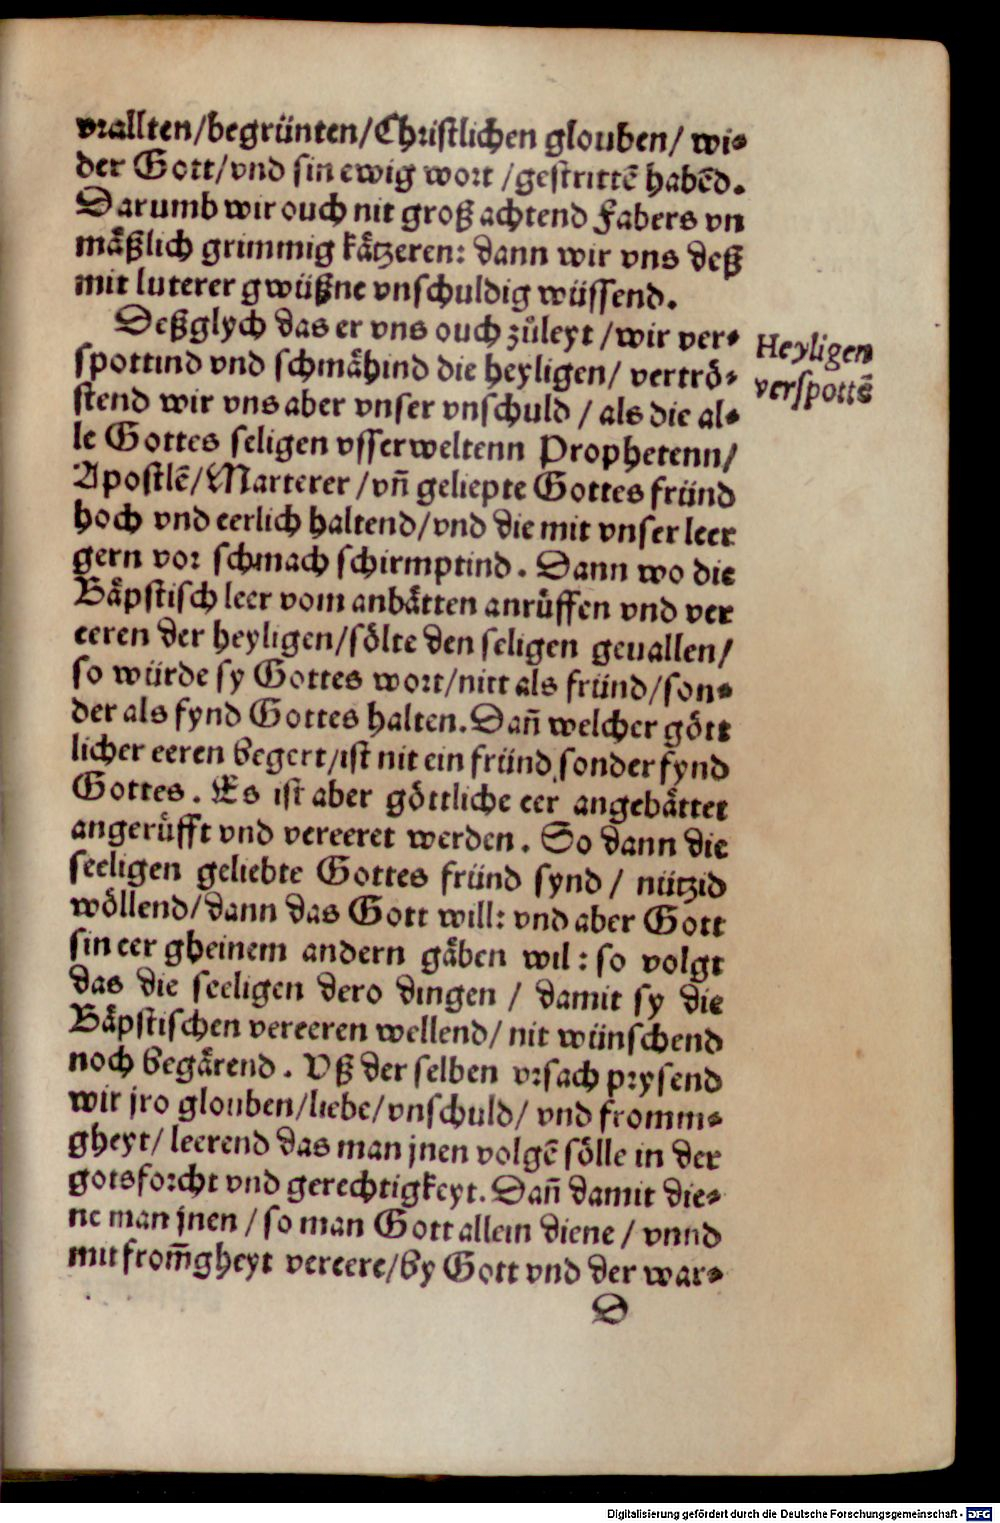 vrallten/begrünten/Christlichen glouben/ wi⸗
der Gott/vnd sin ewig wort /gestrittē habēd.
Darumb wir ouch nit groß achtend Fabers vn
mäßlich grimmig kätzeren: dann wir vns deß
mit luterer gwüßne vnschuldig wüssend.
Deßglych das er vns ouch zůleyt /wir ver⸗
spottind vnd schmähind die heyligen/ vertrö⸗
stend wir vns aber vnser vnschuld / als die al⸗
le Gottes seligen vsserweltenn Prophetenn/
Apostlē/Marterer /vñ geliepte Gottes fründ
hoch vnd eerlich haltend/vnd die mit vnser leer
gern vor schmach schirmptind. Dann wo die
Bäpstisch leer vom anbätten anrüffen vnd ver
eeren der heyligen/sölte den seligen geuallen/
so würde sy Gottes wort/nitt als fründ/son⸗
der als fynd Gottes halten. Dañ welcher gött
licher eeren begert/ist nit ein fründ sonder fynd
Gottes. Es ist aber göttliche eer angebättet
angerüfft vnd vereeret werden. So dann die
seeligen geliebte Gottes fründ synd / nützid
wöllend/dann das Gott will: vnd aber Gott
sin eer gheinem andern gäben wil: so volgt
das die seeligen dero dingen / damit sy die
Bäpstischen vereeren wellend/ nit wünschend
noch begärend. Vß der selben vrsach prysend
wir jro glouben/liebe/vnschuld/ vnd fromm⸗
gheyt/ leerend das man jnen volgē sölle in der
gotsforcht vnd gerechtigkeyt. Dañ damit die⸗
ne man jnen / so man Gott allein diene / vnnd
mit from̄gheyt vereere/by Gott vnd der war⸗
D
Heyligen
verspottē
Digitalisierung gefördert durch die Deutsche Forschungsgemeinschaft - DFG